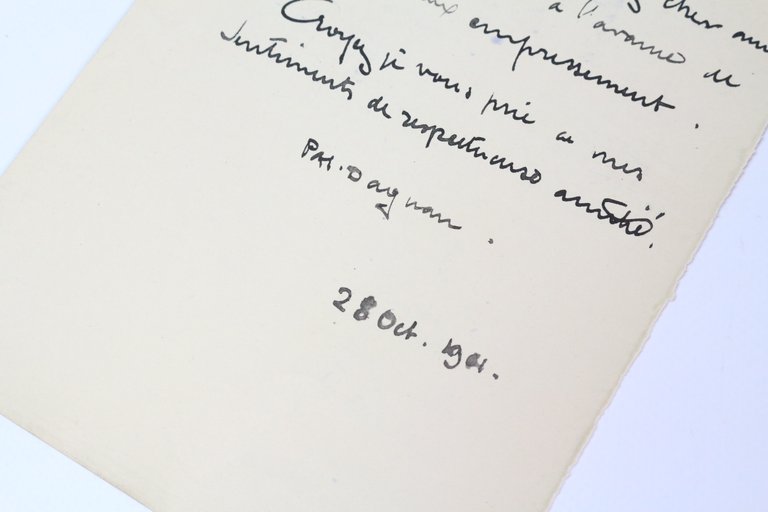 cher
à l'avance de
empressement.
Croyez je vous prie à mes
sentiments de respectueuse amitié.
PAJ. Dagnan.
28 Oct. 1901.